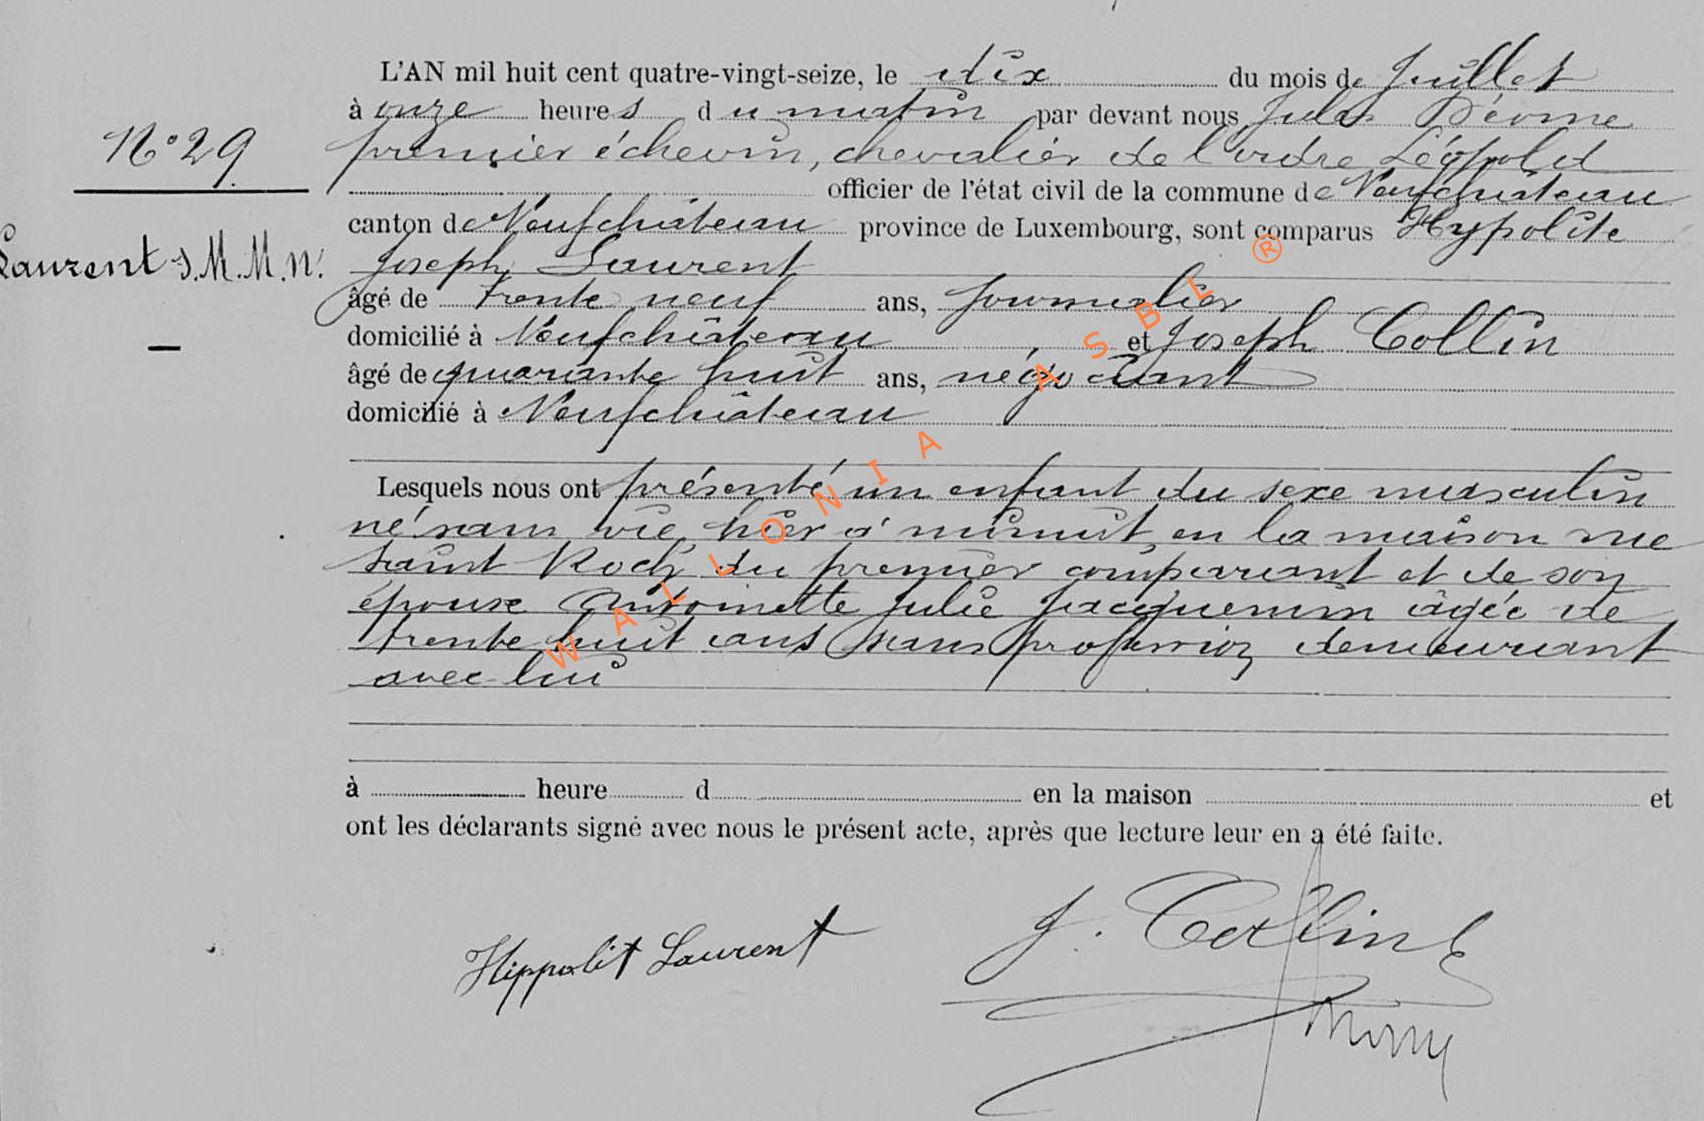 L'AN mil huit cent quatre-vingt-seize, le dix du mois de Juillet
à onze heures du matin par devant nous Jules
N° 29 premier échevin, chevalier de l'ordre Léopold
officier de l'état civil de la commune de Neufchâteau
canton de Neufchâteau province de Luxembourg, sont comparus Hypolite
Laurent s.M.M.N. Joseph Laurent
âgé de trente neuf ans, journalier
domicilié à Neufchâteau et Joseph Collin
âgé de quarante huit ans, négociant
domicilié à Neufchâteau
Lesquels nous ont présenté un enfant du sexe masculin
né sans vie, hier à minuit, en la maison rue
saint Roch, du premier comparant et de son
épouse Antoinette Julie Jacquemin âgée de
trente huit ans sans profession demeurant
avec lui
à heure d en la maison et
ont les déclarants signé avec nous le présent acte, après que lecture leur en a été faite.
Hippolit Laurent J. Collin
WALLONIA ASBL ®